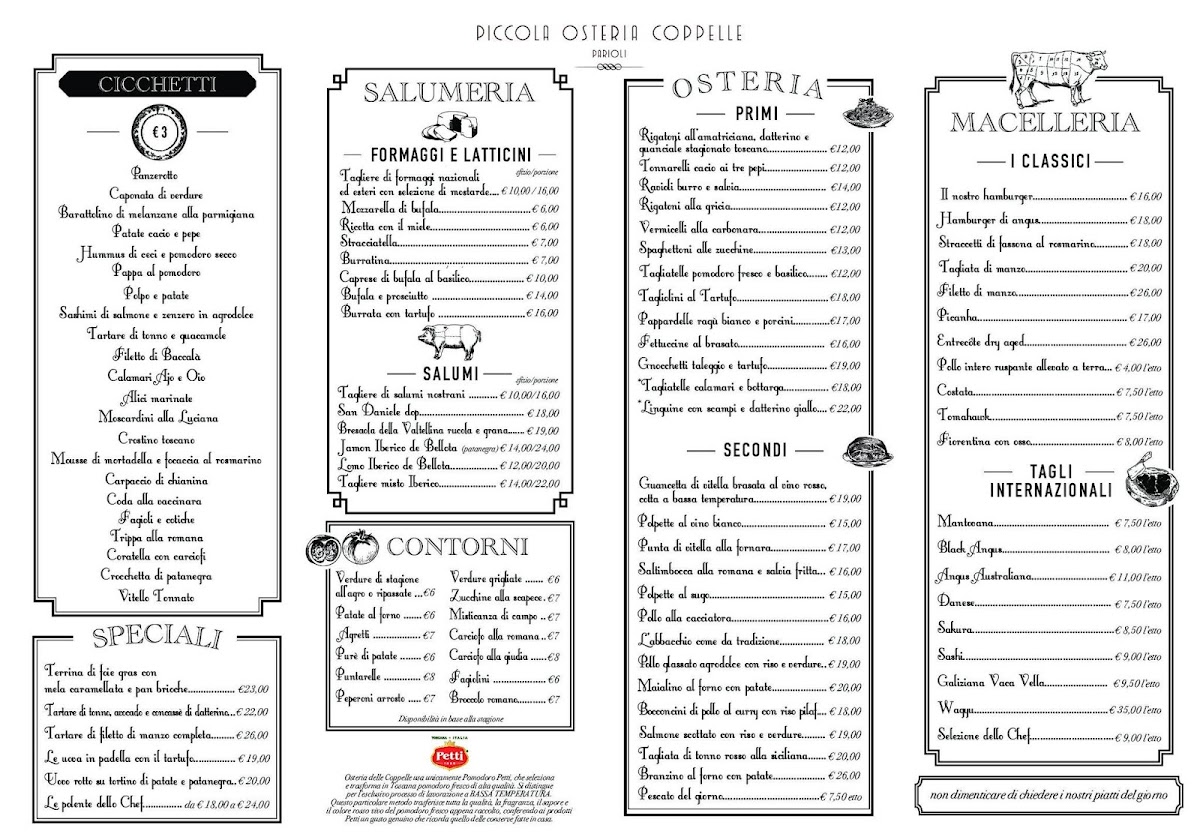 PICCOLA OSTERIA COPPELLE
PARIOLI
CICCHETTI
€ 3
Panzerotto
Caponata di verdure
Barattolino di melanzane alla parmigiana
Patate cacio e pepe
Hummus di ceci e pomodoro secco
Pappa al pomodoro
Polpo e patate
Sashimi di salmone e zenzero in agrodolce
Tartare di tonno e guacamole
Filetto di Baccalà
Calamari Ajo e Oio
Alici marinate
Moscardini alla Luciana
Crostino toscano
Mousse di mortadella e focaccia al rosmarino
Carpaccio di chianina
Coda alla vaccinara
Fagioli e cotiche
Trippa alla romana
Coratella con carciofi
Crocchetta di patanegra
Vitello Tonnato
SPECIALI
Terrina di foie gras con
mela caramellata e pan brioche.................. €23,00
Tartare di tonno, avocado e concassè di datterino...€ 22,00
Tartare di filetto di manzo completa......... € 26,00
Le uova in padella con il tartufo...............€ 19,00
Uovo rotto su tortino di patate e patanegra..€ 20.00
Le polente dello Chef.............. da € 18.00 a € 24,00
SALUMERIA
FORMAGGI E LATTICINI
sfizio/porzione
Tagliere di formaggi nazionali
ed esteri con selezione di mostarde.... € 10,00 / 16,00
Mozzarella di bufala.........................€ 6,00
Ricotta con il miele........................... € 6,00
Stracciatella..................................... € 7,00
Burratina......................................... € 7,00
Caprese di bufala al basilico...............€ 10,00
Bufala e prosciutto .........................€ 14,00
Burrata con tartufo .......................€ 16,00
SALUMI
sfizio/porzione
Tagliere di salumi nostrani .......... € 10,00/16,00
San Daniele dop............................. € 18,00
Bresaola della Valtellina rucola e grana....... € 19,00
Jamon Iberico de Bellota (patanegra) € 14,00/24,00
Lomo Iberico de Bellota................. € 12,00/20.00
Tagliere misto Iberico................... € 14,00/22,00
CONTORNI
Verdure di stagione
all'agro o ripassate ...€6
Patate al forno ...... €6
Agretti ................ €7
Purè di patate ....... €6
Puntarelle ............ €8
Peperoni arrosto ..... €7
Verdure grigliate ....... €6
Zucchine alla scapece..€7
Misticanza di campo .. €7
Carciofo alla romana .. €7
Carciofo alla giudia ..... €8
Fagiolini ................ €6
Broccolo romano........ €7
Disponibilità in base alla stagione
TOSCANA - ITALIA
Petti
Osteria delle Coppelle usa unicamente Pomodoro Petti, che seleziona
e trasforma in Toscana pomodoro fresco di alta qualità. Si distingue
per l'esclusivo processo di lavorazione a BASSA TEMPERATURA.
Questo particolare metodo trasferisce tutta la qualità, la fragranza, il sapore e
il colore rosso vivo del pomodoro fresco appena raccolto, conferendo ai prodotti
Petti un gusto genuino che ricorda quello delle conserve fatte in casa.
OSTERIA
PRIMI
Rigatoni all'amatriciana, datterino e
guanciale stagionato toscano................. €12,00
Tonnarelli cacio ai tre pepi................. €12,00
Ravioli burro e salvia......................... €14,00
Rigatoni alla gricia...........................€12,00
Vermicelli alla carbonara.................... €12,00
Spaghettoni alle zucchine.................. €13,00
Tagliatelle pomodoro fresco e basilico....... €12,00
Tagliolini al Tartufo.........................€18.00
Pappardelle ragù bianco e porcini............€17,00
Fettuccine al brasato......................... €16,00
Gnocchetti taleggio e tartufo................€19.00
*Tagliatelle calamari e bottarga............ €18,00
*Linguine con scampi e datterino giallo.... € 22,00
SECONDI
Guancetta di vitella brasata al vino rosso,
cotta a bassa temperatura....................€ 19,00
Polpette al vino bianco....................... € 15,00
Punta di vitella alla fornara................. € 17,00
Saltimbocca alla romana e salvia fritta... € 16,00
Polpette al sugo................................ € 15,00
Pollo alla cacciatora......................... € 16,00
L'abbacchio come da tradizione............ € 18.00
Pollo glassato agrodolce con riso e verdure.. € 19,00
Maialino al forno con patate................ € 20,00
Bocconcini di pollo al curry con riso pilaf.... € 18,00
Salmone scottato con riso e verdure....... € 19,00
Tagliata di tonno rosso alla siciliana....... € 20,00
Branzino al forno con patate............... € 26,00
Pescato del giorno.............................€ 7,50 etto
MACELLERIA
I CLASSICI
Il nostro hamburger.......................... € 16,00
Hamburger di angus.........................€ 18,00
Straccetti di fassona al rosmarino..........€ 18,00
Tagliata di manzo............................€ 20,00
Filetto di manzo...............................€ 26,00
Picanha......................................... € 17,00
Entrecôte dry aged............................€ 26,00
Pollo intero ruspante allevato a terra... € 4,00 l'etto
Costata...................................... € 7,50 l'etto
Tomahawk...................................€ 7,50 l'etto
Fiorentina con osso........................ € 8,00 l'etto
TAGLI
INTERNAZIONALI
Mantovana.................................. € 7,50 l'etto
Black Angus................................. € 8,00 l'etto
Angus Australiana........................ € 11,00 l'etto
Danese....................................... € 7,50 l'etto
Sakura....................................... € 8,50 l'etto
Sashi......................................... € 9,00 l'etto
Galiziana Vaca Vella.................... € 9,50 l'etto
Wagyu...................................... € 35,00 l'etto
Selezione dello Chef........................ € 9,00 l'etto
non dimenticare di chiedere i nostri piatti del giorno